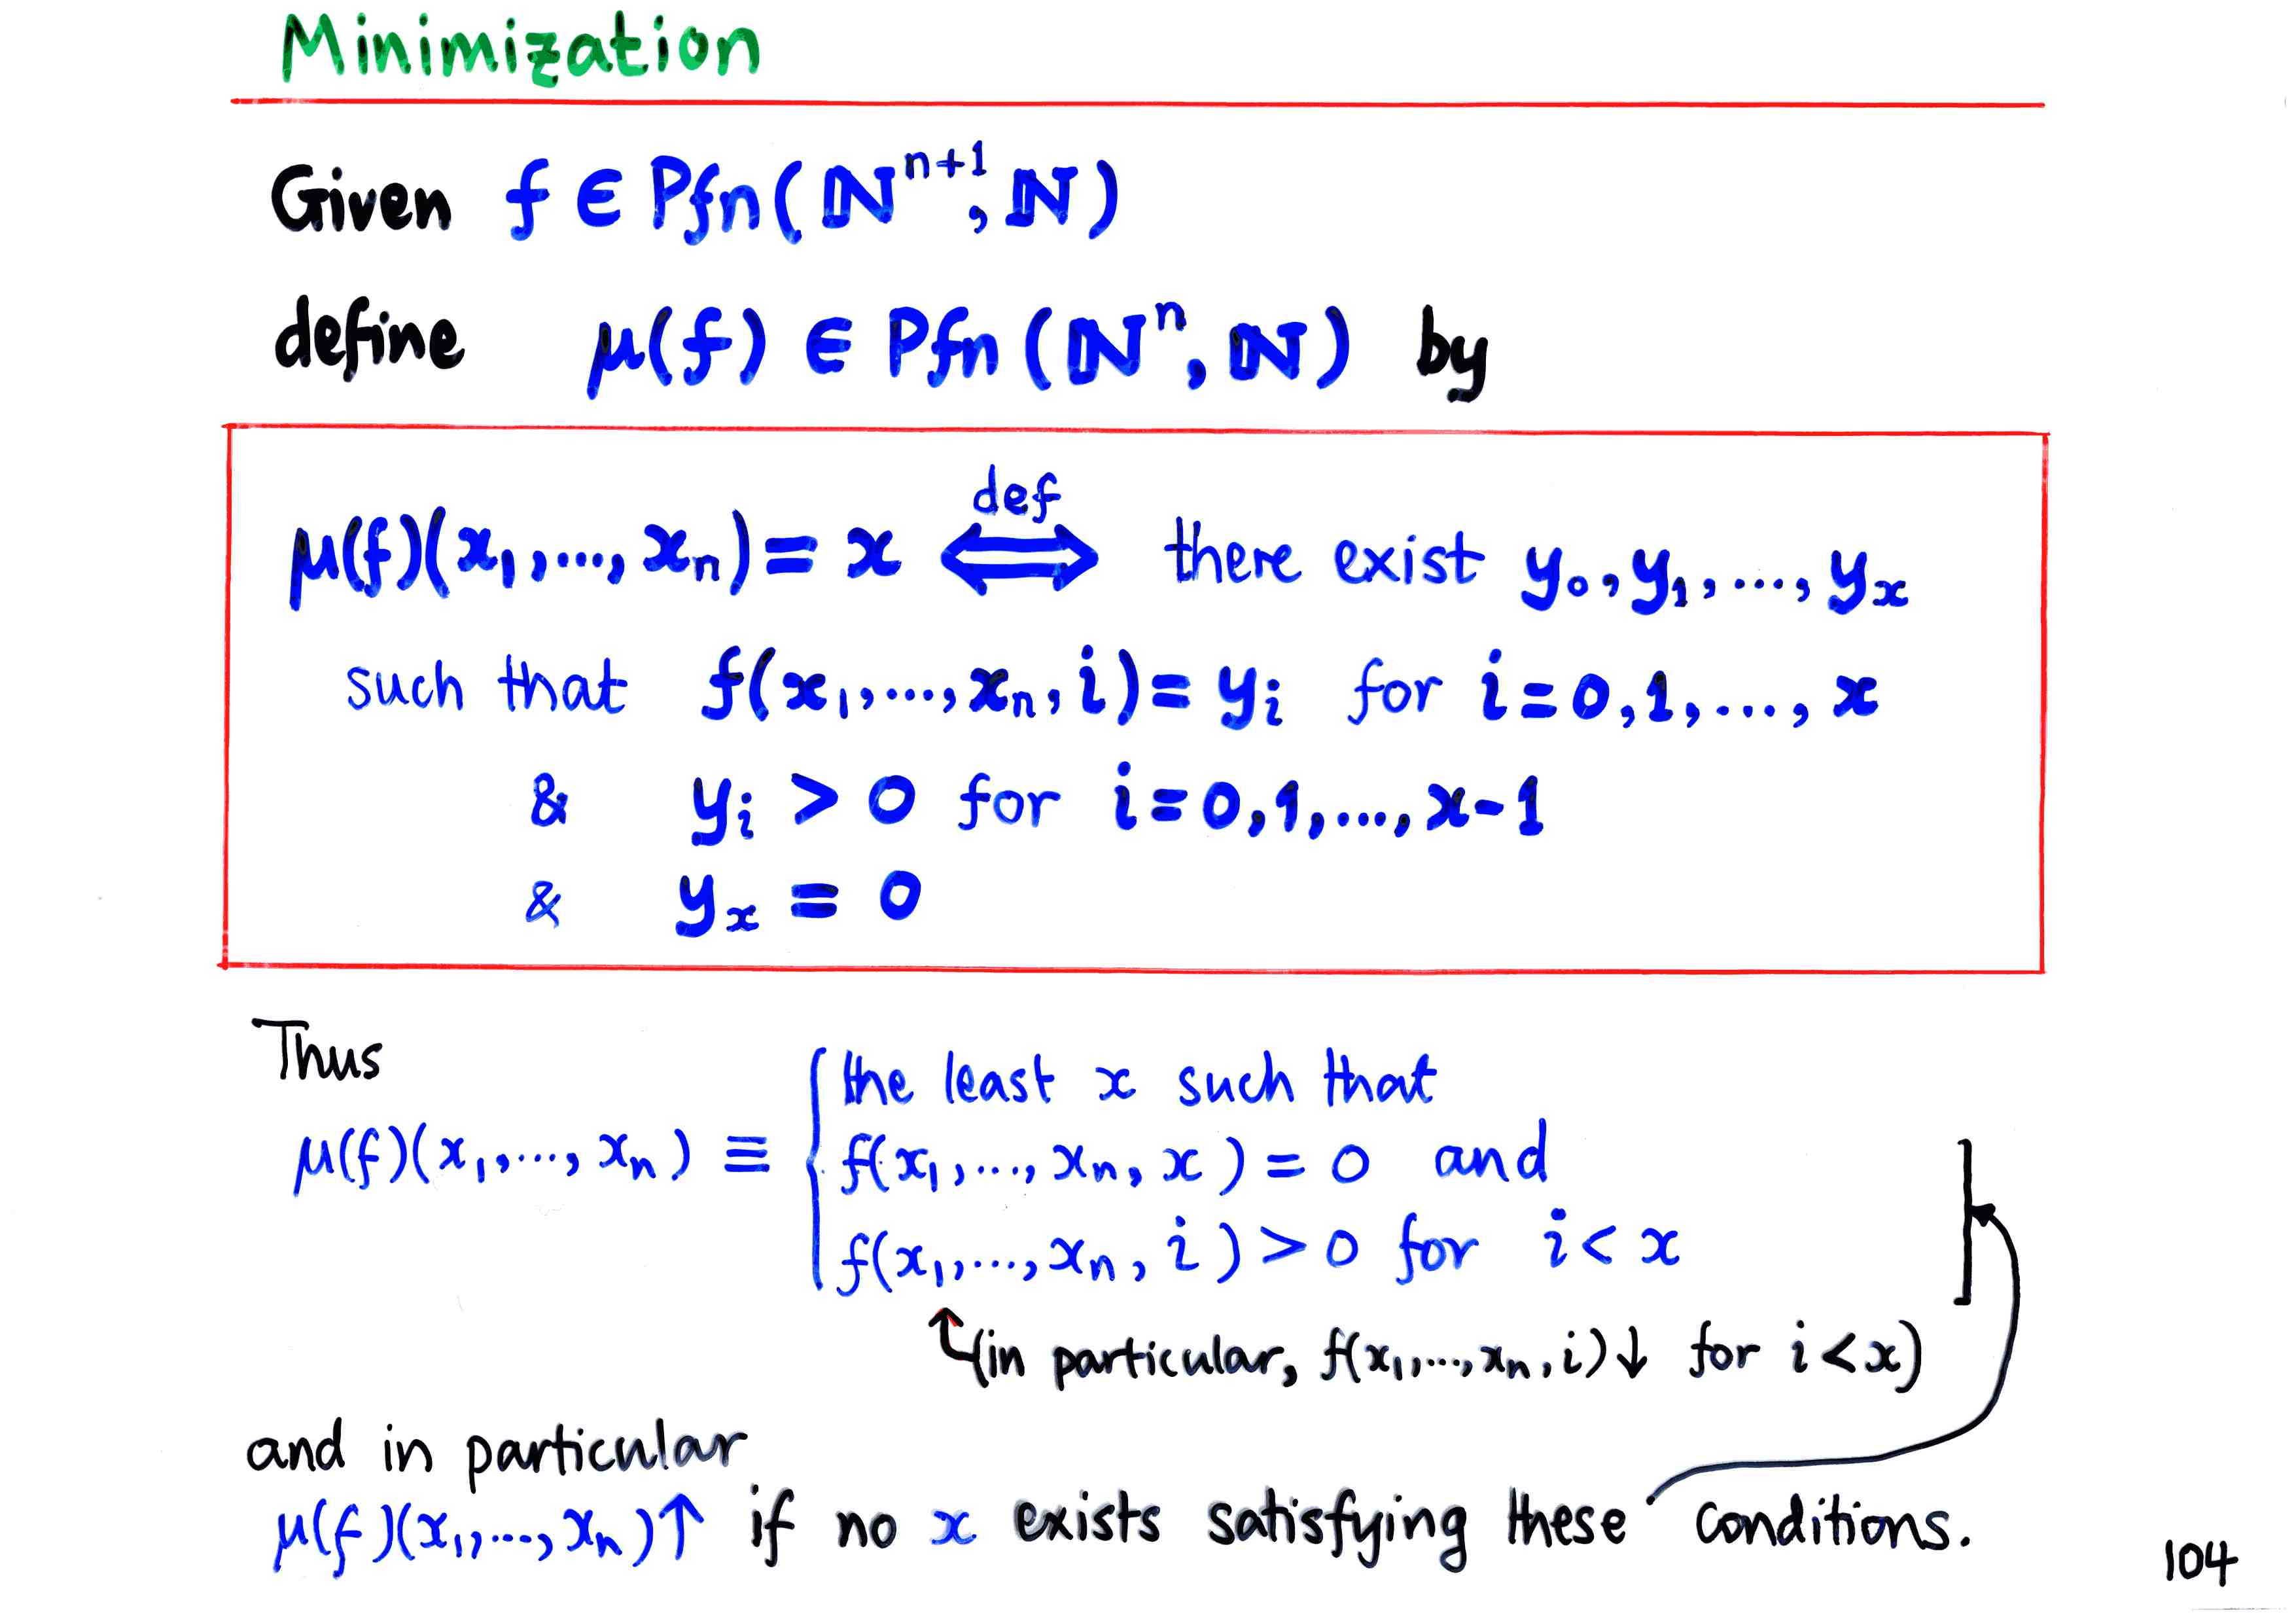 Minimization
Given f ∈ Pfn(ℕⁿ⁺¹, ℕ)
define μ(f) ∈ Pfn(ℕⁿ, ℕ) by
def
μ(f)(x₁,...,xₙ) = x ⟺ there exist y₀, y₁, ..., yₓ
such that f(x₁,...,xₙ, i) = yᵢ for i = 0, 1, ..., x
& yᵢ > 0 for i = 0, 1, ..., x-1
& yₓ = 0
Thus
the least x such that
μ(f)(x₁,...,xₙ) ≡ { f(x₁,...,xₙ, x) = 0 and
f(x₁,...,xₙ, i) > 0 for i < x
(in particular, f(x₁,...,xₙ, i)↓ for i < x)
and in particular
μ(f)(x₁,...,xₙ)↑ if no x exists satisfying these conditions.
104